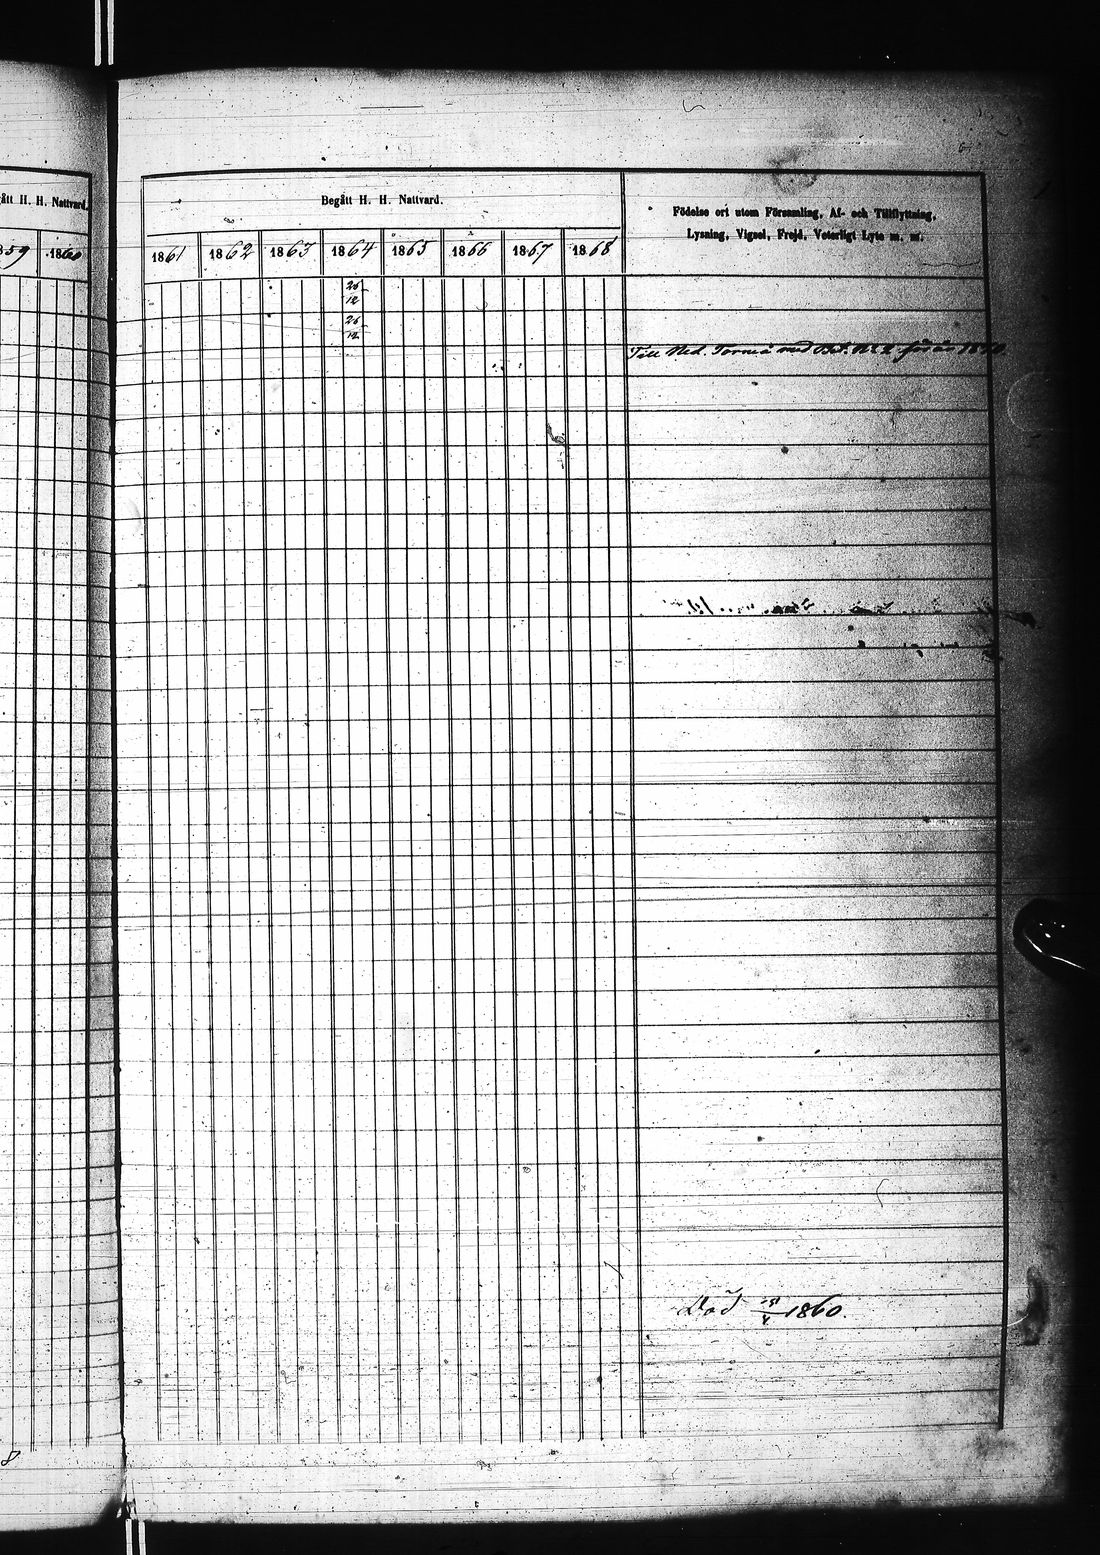 gått H. H. Nattvard.
859 1860
Begått H. H. Nattvard.
Födelse ort utom Församling, Af- och Tillflyttning,
Lysning, Vigsel, Frejd, Veterligt Lyte m. m.
1861 1862 1863 1864 1865 1866 1867 1868
26
12
26
12
Till Ned. Torneå med Bet. No 2 för år
Död 1860.
8